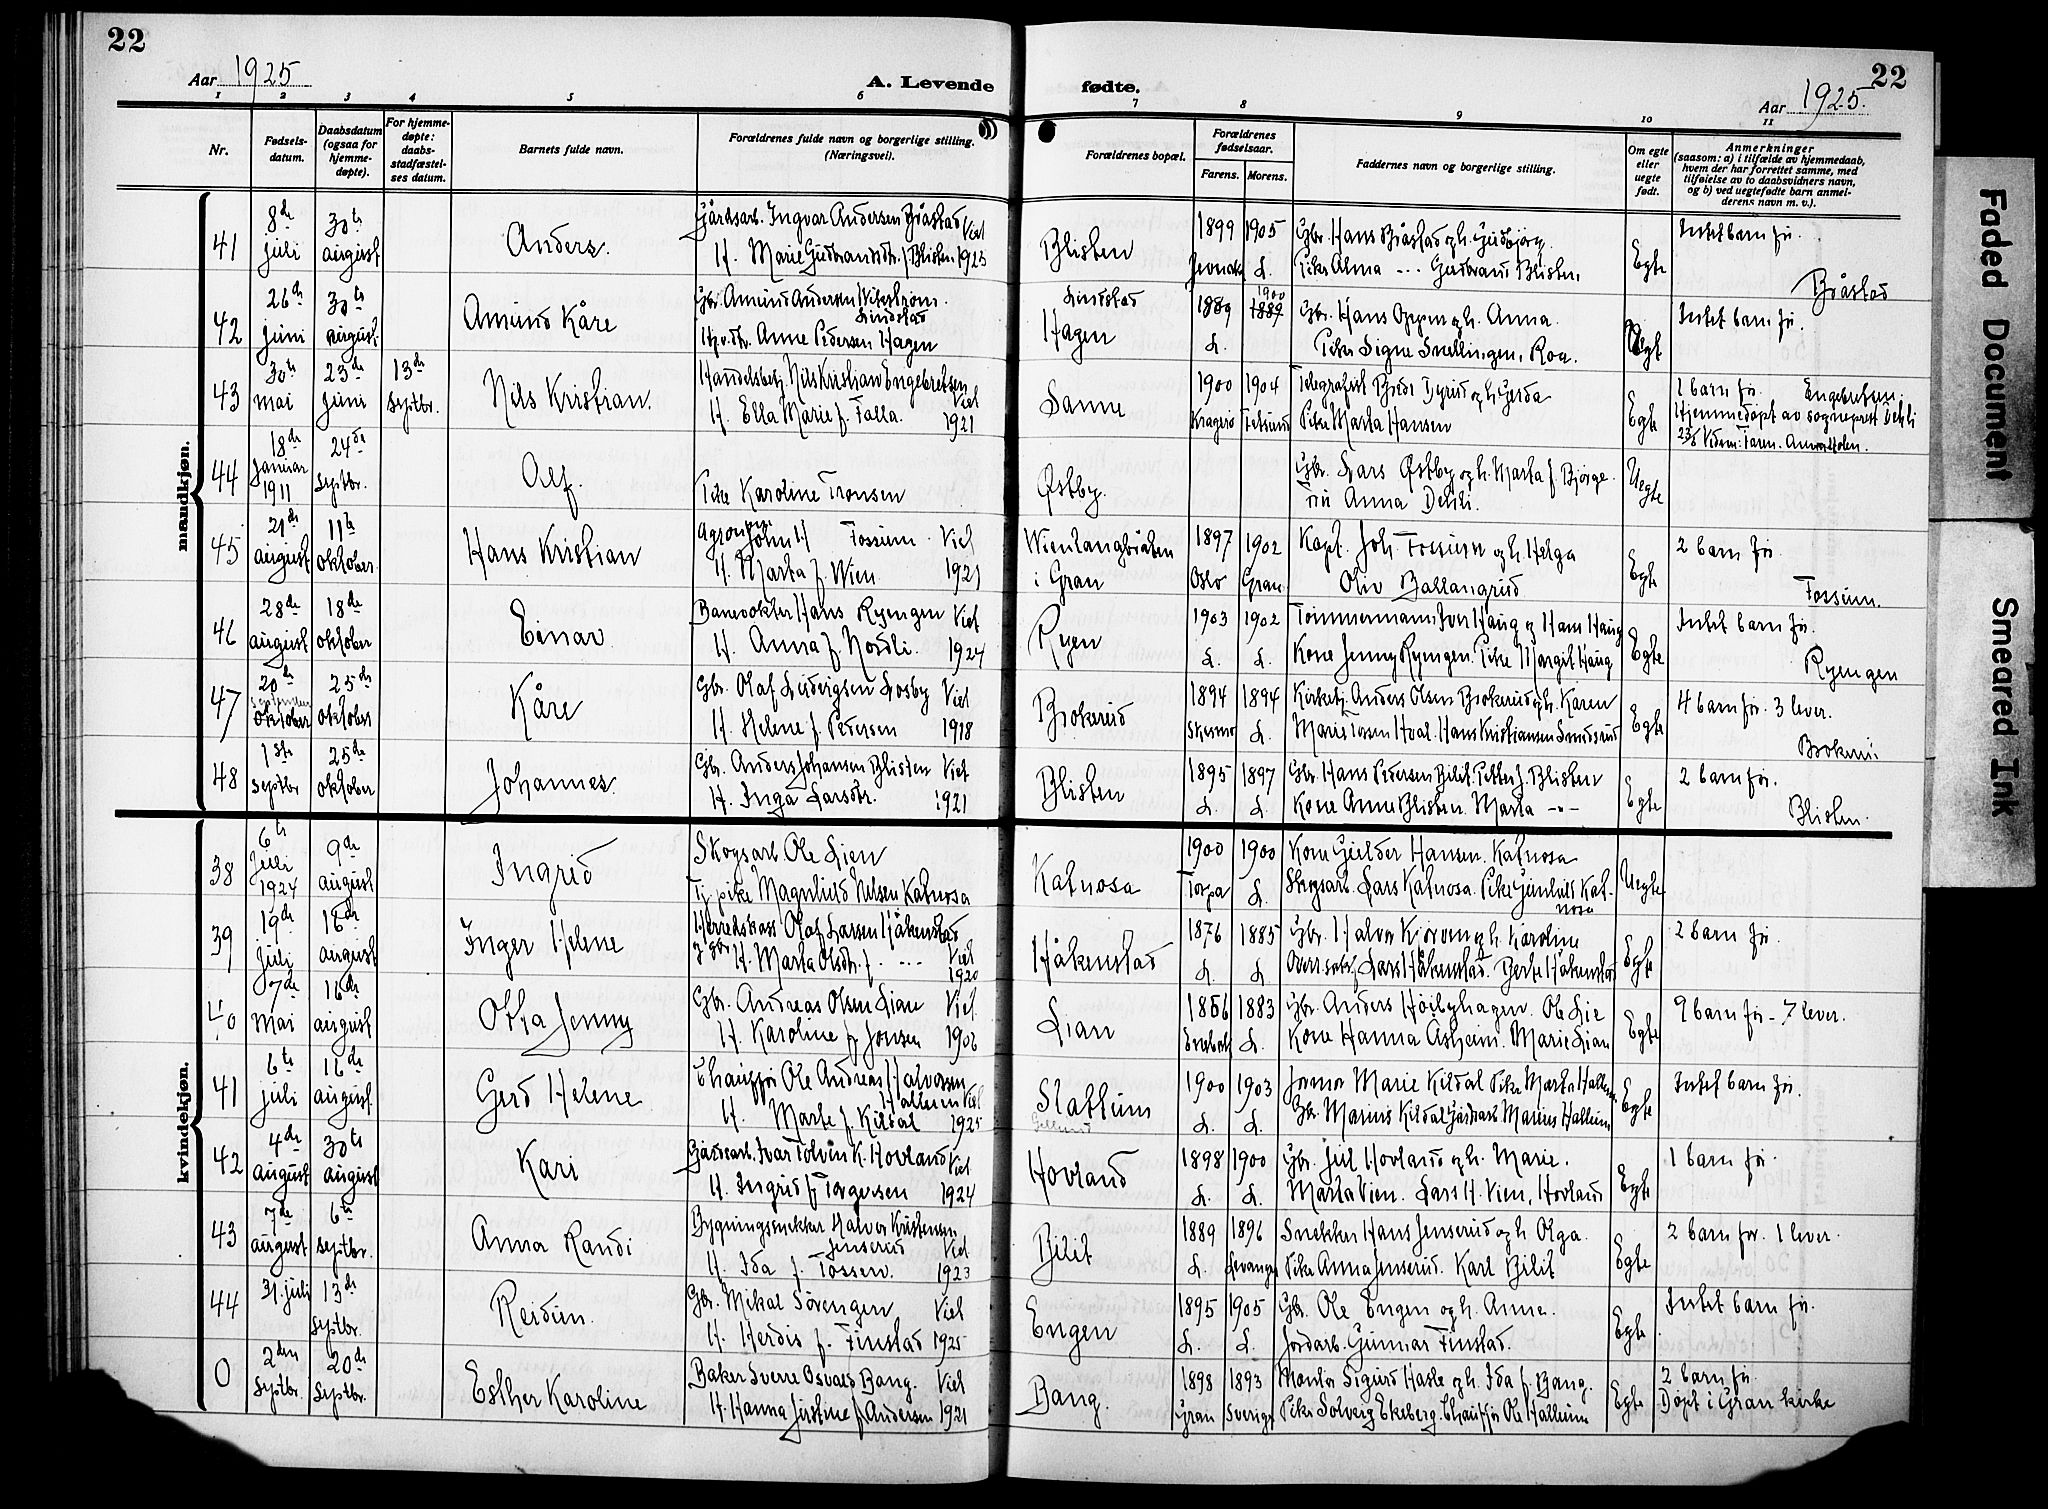 22
22
Aar 1925
A. Levende
fødte.
Aar 1925.
1 2 3 4 5 6 7 8 9 10 11
Nr.
Fødsels-
datum.
Daabsdatum
(ogsaa for
hjemme-
døpte).
For hjemme-
døpte:
daabs-
stadfæstel-
ses datum.
Barnets fulde navn.
Forældrenes fulde navn og borgerlige stilling.
(Næringsvei).
Forældrenes bopæl.
Forældrenes
fødselsaar.
Farens. Morens.
Faddernes navn og borgerlige stilling.
Om egte
eller
uegte
født.
Anmerkninger
(saasom: a) i tilfælde av hjemmedaab,
hvem der har forrettet samme, med
tilføielse av to daabsvidners navn,
og b) ved uegtefødte barn anmel-
derens navn m. v.).
mandkjøn.
41
8de juli
30te august
Anders.
Gårdsarb. Ingvar Andersen Bråstad Viet
H. Marie Gudbrandsdtr. f. Blisten 1925
Blisten
1899 1905
Jevnaker L.
Gbr. Hans Bråstad og h. Gudbjörg.
Pike Alma -"- Gudbrand Blisten.
Egte
Intet barn før.
Bråstad
42
26de juni
30te august.
Amund Kåre
Gbr. Amund Andersen
Lindstad
Anne Pedersen Hagen
Lindstad
Hagen
1889 1900 1889
L.
Gbr. Hans Oppen og h. Anna.
Pike Signe Snellingen, Roa.
Uegt
Intet barn før.
43
30te mai
23de juni
13de septbr.
Nils Kristian.
Handelsbetj. Nils Kristian Engebretsen Viet
H. Ella Marie f. Falla. 1921
Sanne
1900 1904
Kragerö Fetsund
Telegrafist og h. Gerda
Pike Marta Hansen
Egte
1 barn før. Engebretsen.
Hjemmedøpt av sogneprest Dehli
23/6 Vidner: Faren.
44
18de Januar 1911
24de septbr.
Alf.
Pike Karoline Tronsen
Østby.
Gbr. Lars Østby og h. Marta f. Bjørge.
Fru Anna Dehli.
Uegte
45
21de august
11te oktober
Hans Kristian
Agronom John H Fossum. Viet
H. Marta f. Wien 1921
i Gran
1897 1902
Oslo Gran
Kapt. Joh. Fossum og h. Helga
Oliv Ballangrud
Egte
2 barn før.
Fossum.
46
28de august
18de oktober
Einar
Banevokter Hans Ryengen Viet
H. Anna f. Nordli. 1924
Ryen
1903 1902
L. L.
Tömmermann Iver Haug og Hans Haug
Kone Jenny Ryengen. Pike Margit Haug
Egte
Intet barn før.
Ryengen
47
20de september oktober
25de oktober
Kåre
Gbr. Olaf Ludvigsen Losby Viet
H. Helene f. Pedersen 1918
Brokerud
1894 1894
Skesmo L.
Kirketj. Anders Olsen Brokerud og h. Karen
Hans Kristiansen
Egte
4 barn før. 3 lever.
Brokerud
48
1ste septbr
25de oktober
Johannes.
Gbr. Anders Johansen Blisten Viet
H. Inga Larsdtr. 1921
Blisten
1895 1897
L. L.
Gbr. Hans Pedersen Bilit. Petter J. Blisten
Kone Anne Blisten. Marta -"-
Egte
2 barn før.
Blisten.
kvindekjøn.
38
6te Juli 1924
9de august
Ingrid
Skogsarb Ole Lien
Tj. pike Magnhild Nilsen Katnosa
Katnosa
1900 1900
Torpa L.
Kone Hansen. Katnosa
Skogsarb. Lars Katnosa. Pike Gunhild Kat-
nosa
Uegte
39
19de juli
16de august
Inger Helene
Herredskass Olaf Larsen Håkenstad
H. Marta Olsdtr. f. -"- Viet 1920
Håkenstad
1876 1885
L. L
Gbr. Halvor Kjörven og h. Karoline
Lars Håkenstad. Berte Håkenstad
Egte
2 barn før.
40
7de mai
16de august
Otta Jenny
Gbr. Andreas Olsen Lian Viet
H. Karoline f. Jonsen 1906
Lian
1886 1883
L.
Gbr. Anders Höibyhagen. Ole Lie
Kone Hanna Åsheim. Marie Lian
Egte
9 barn før - 7 lever.
41
6te juli
16de august
Gerd Helene
Chauffør Ole Andreas Halvorsen
Hallum Viet
H. Marte f. Kildal 1925
Slattum
1900 1903
L. L.
Jormor Marie Kildal Pike Marta Hallum
Gbr. Marius Kildal Gårdsarb Marius Hallum
Egte
Intet barn før.
42
4de august
30te august
Kari
Gårdsarb. Ivar Tolvin K. Hovland Viet
H. Ingrid f. Torgersen 1924
Hovland
1898 1900
L. L.
Gbr. Jul Hovland og h. Marie.
Marta Vien. Lars H. Vien, Hovland
Egte
1 barn før.
43
7de august
6te septbr.
Anna Randi
Bygningssnekker Halvor Kristensen
Jenserud Viet
H. Ida f. Fossen. 1923
Bilit
1889 1896
L. Levanger
Snekker Hans Jenserud og h. Olga.
Pike Anna Jenserud. Karl Bilit
Egte
2 barn før. 1 lever.
44
31. juli
13de septbr.
Reidun.
Gbr. Mikal Sörengen Viet
H. Herdis f. Finstad 1925
Engen
1895 1905
L. L.
Gbr. Ole Engen og h. Anne.
Jordarb. Gunnar Finstad.
Egte
Intet barn før.
0
2den Septbr.
20de Septbr.
Esther Karoline
Baker Sverre Osvald Bang. Viet
H. Hanna Justine f. Andersen 1921
Bang.
1898 1893
Gran Sverige
Montør Sigurd Hasle og h. Ida f. Bang.
Pike Solverg Ekeberg. Chauffør Ole Hallum
Egte
2 barn før.
Døpt i Gran kirke
Faded Document
Smeared Ink